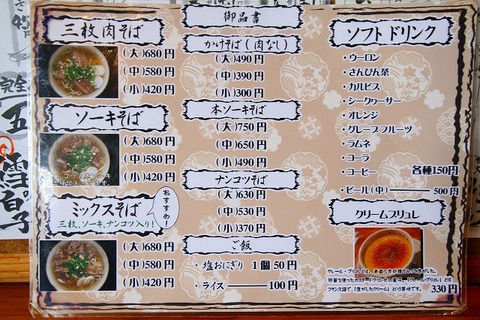 御品書
三枚肉そば
(大)680円
(中)580円
(小)420円
ソーキそば
(大)680円
(中)580円
(小)420円
おすすめ!
ミックスそば
三枚、ソーキ、ナンコツ入り!
(大)680円
(中)580円
(小)420円
かけそば(肉なし)
(大)490円
(中)390円
(小)300円
本ソーキそば
(大)750円
(中)650円
(小)490円
ナンコツそば
(大)630円
(中)530円
(小)370円
ご飯
・塩おにぎり 1個50円
・ライス 100円
ソフトドリンク
・ウーロン
・さんぴん茶
・カルピス
・シークヮーサー
・オレンジ
・グレープフルーツ
・ラムネ
・コーラ
・コーヒー 各種150円
・ビール(中) 500円
クリームブリュレ
330円